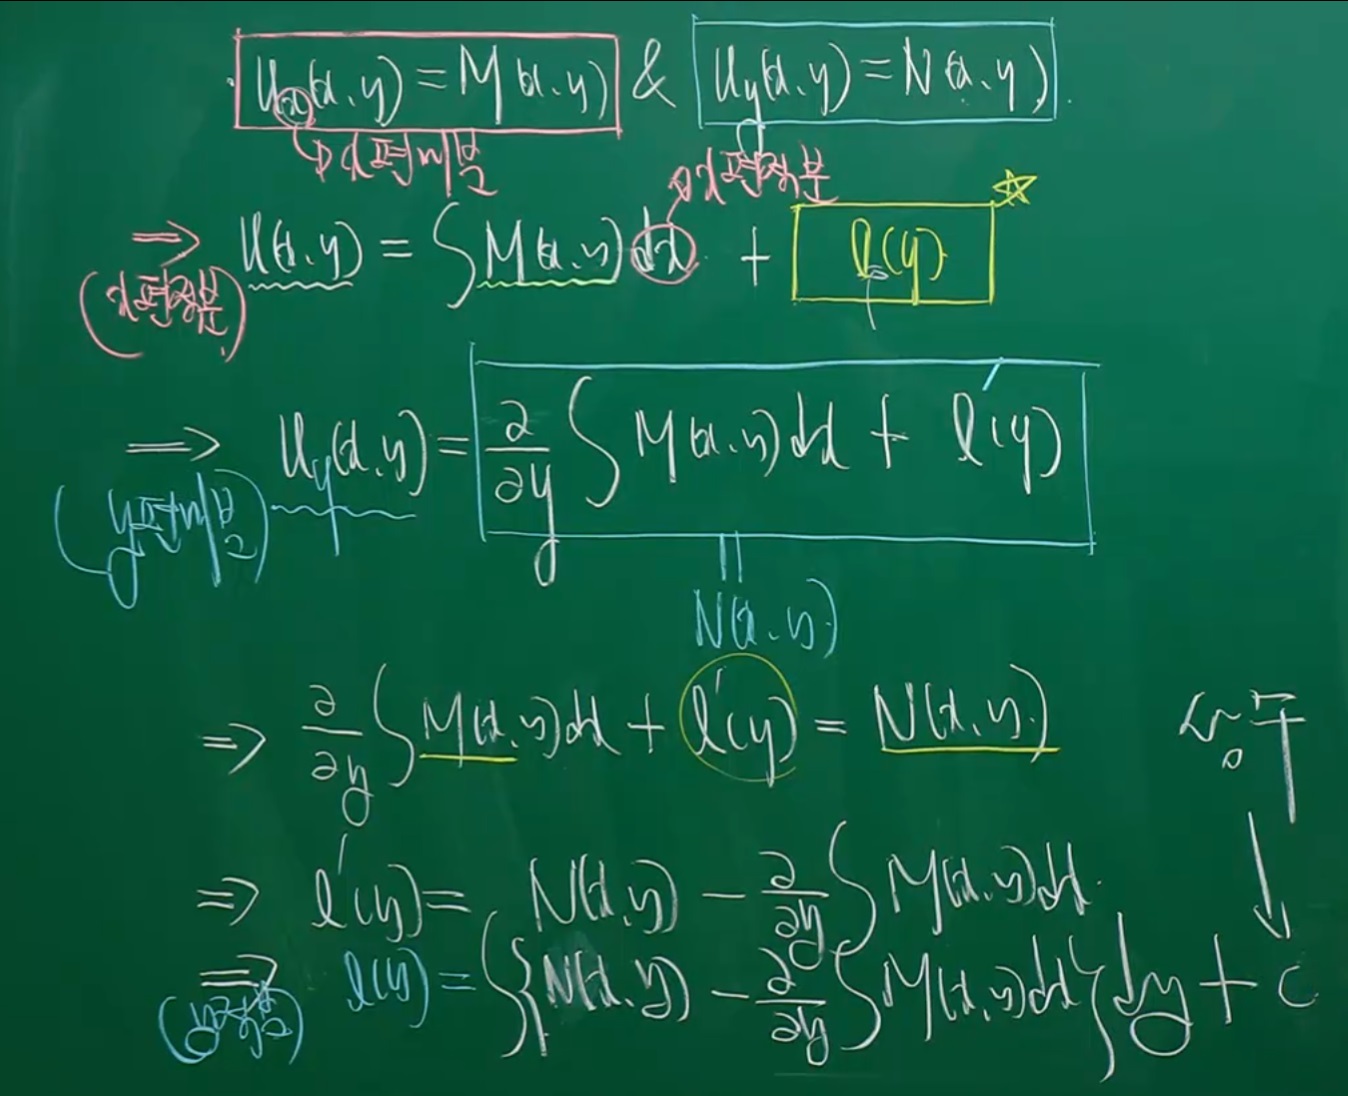 u_x(x,y) = M(x,y) & u_y(x,y) = N(x,y).
x편미분 x편적분
⇒ u(x,y) = ∫ M(x,y) dx + l(y) ☆
(x편적분)
⇒ u_y(x,y) = ∂/∂y ∫ M(x,y) dx + l'(y)
(y편미분)
|| N(x,y)
⇒ ∂/∂y ∫ M(x,y) dx + l'(y) = N(x,y)
⇒ l'(y) = N(x,y) - ∂/∂y ∫ M(x,y) dx.
⇒ l(y) = ∫ { N(x,y) - ∂/∂y ∫ M(x,y) dx } dy + c